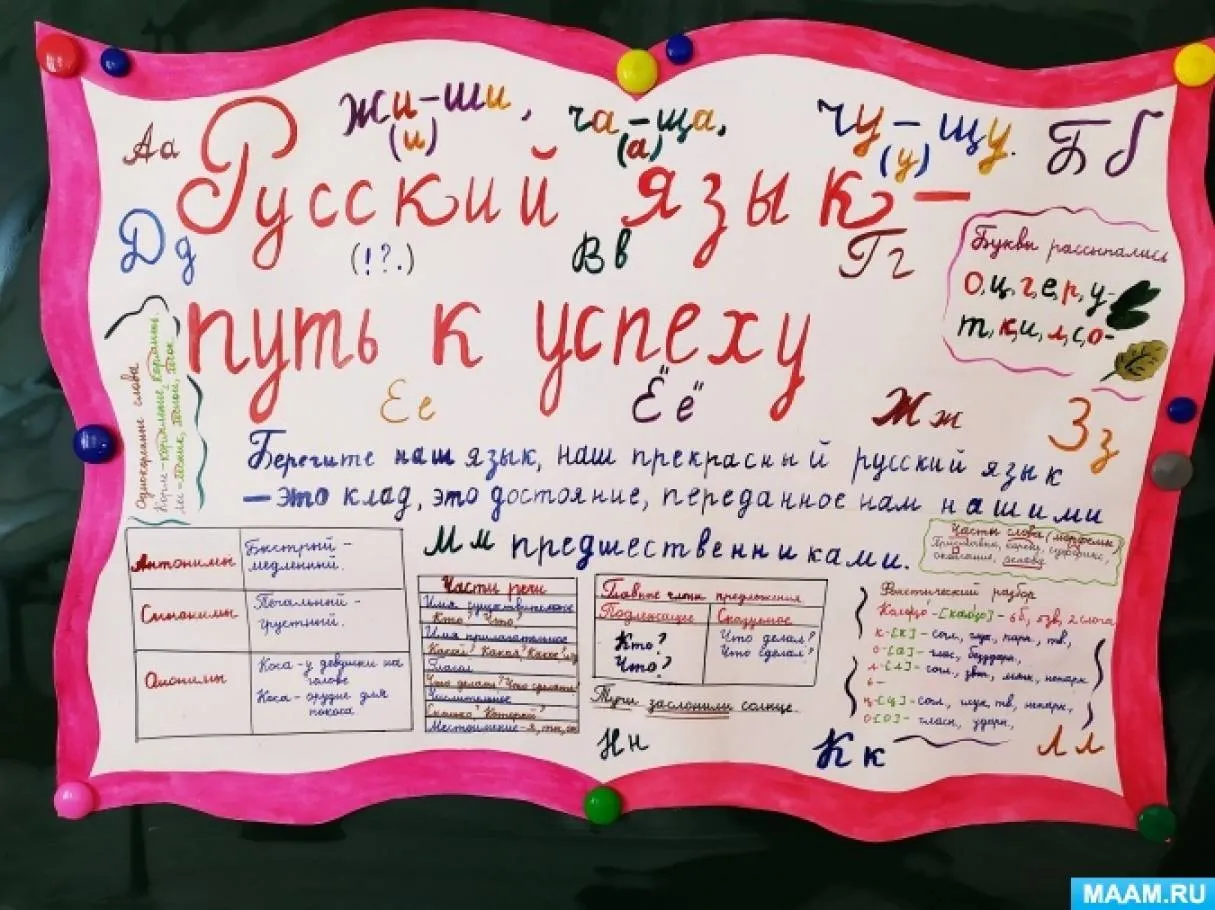 жи-ши, ча-ща, чу-щу.
(и) (а) (у)
Аа
Бб
Русский язык -
Дд
(!?.)
Вв
Гг
путь к успеху
Буквы рассыпались
о, ц, г, е, р, у-
т, к, и, л, с, о-
Однокоренные слова
Корм-кормление, кормить.
лес-лесник, лесной, лесок
Ее
Ёё
Жж
Зз
Берегите наш язык, наш прекрасный русский язык
- это клад, это достояние, переданное нам нашими
Мм
предшественниками.
Части слова (морфемы)
Приставка, корень, суффикс,
окончание, основа
Антонимы
Быстрый -
медленный.
Синонимы
Печальный -
грустный.
Омонимы
Коса - у девушки на
голове
Коса - орудие для
покоса
Части речи
Имя существительное
Кто? Что?
Имя прилагательное
Какой? Какая? Какое?
Глагол
Что делать? Что сделать?
Числительное
Сколько? Который?
Местоимение - я, ты, он
Главные члены предложения
Подлежащее
Сказуемое
Кто?
Что?
Что делал?
Что сделал?
Тучи заслонили солнце.
Фонетический разбор
Кольцо - - 6б, 5зв, 2 слога
к-[к] - согл, глух, парн, тв,
о-[а] - глас, безударн,
л-[л] - согл, звт, мягк, непарн
ь-
ц-[ц] - согл, глух, тв, непарн,
о[о] - гласн, ударн,
Нн
Кк
Лл
MAAM.RU